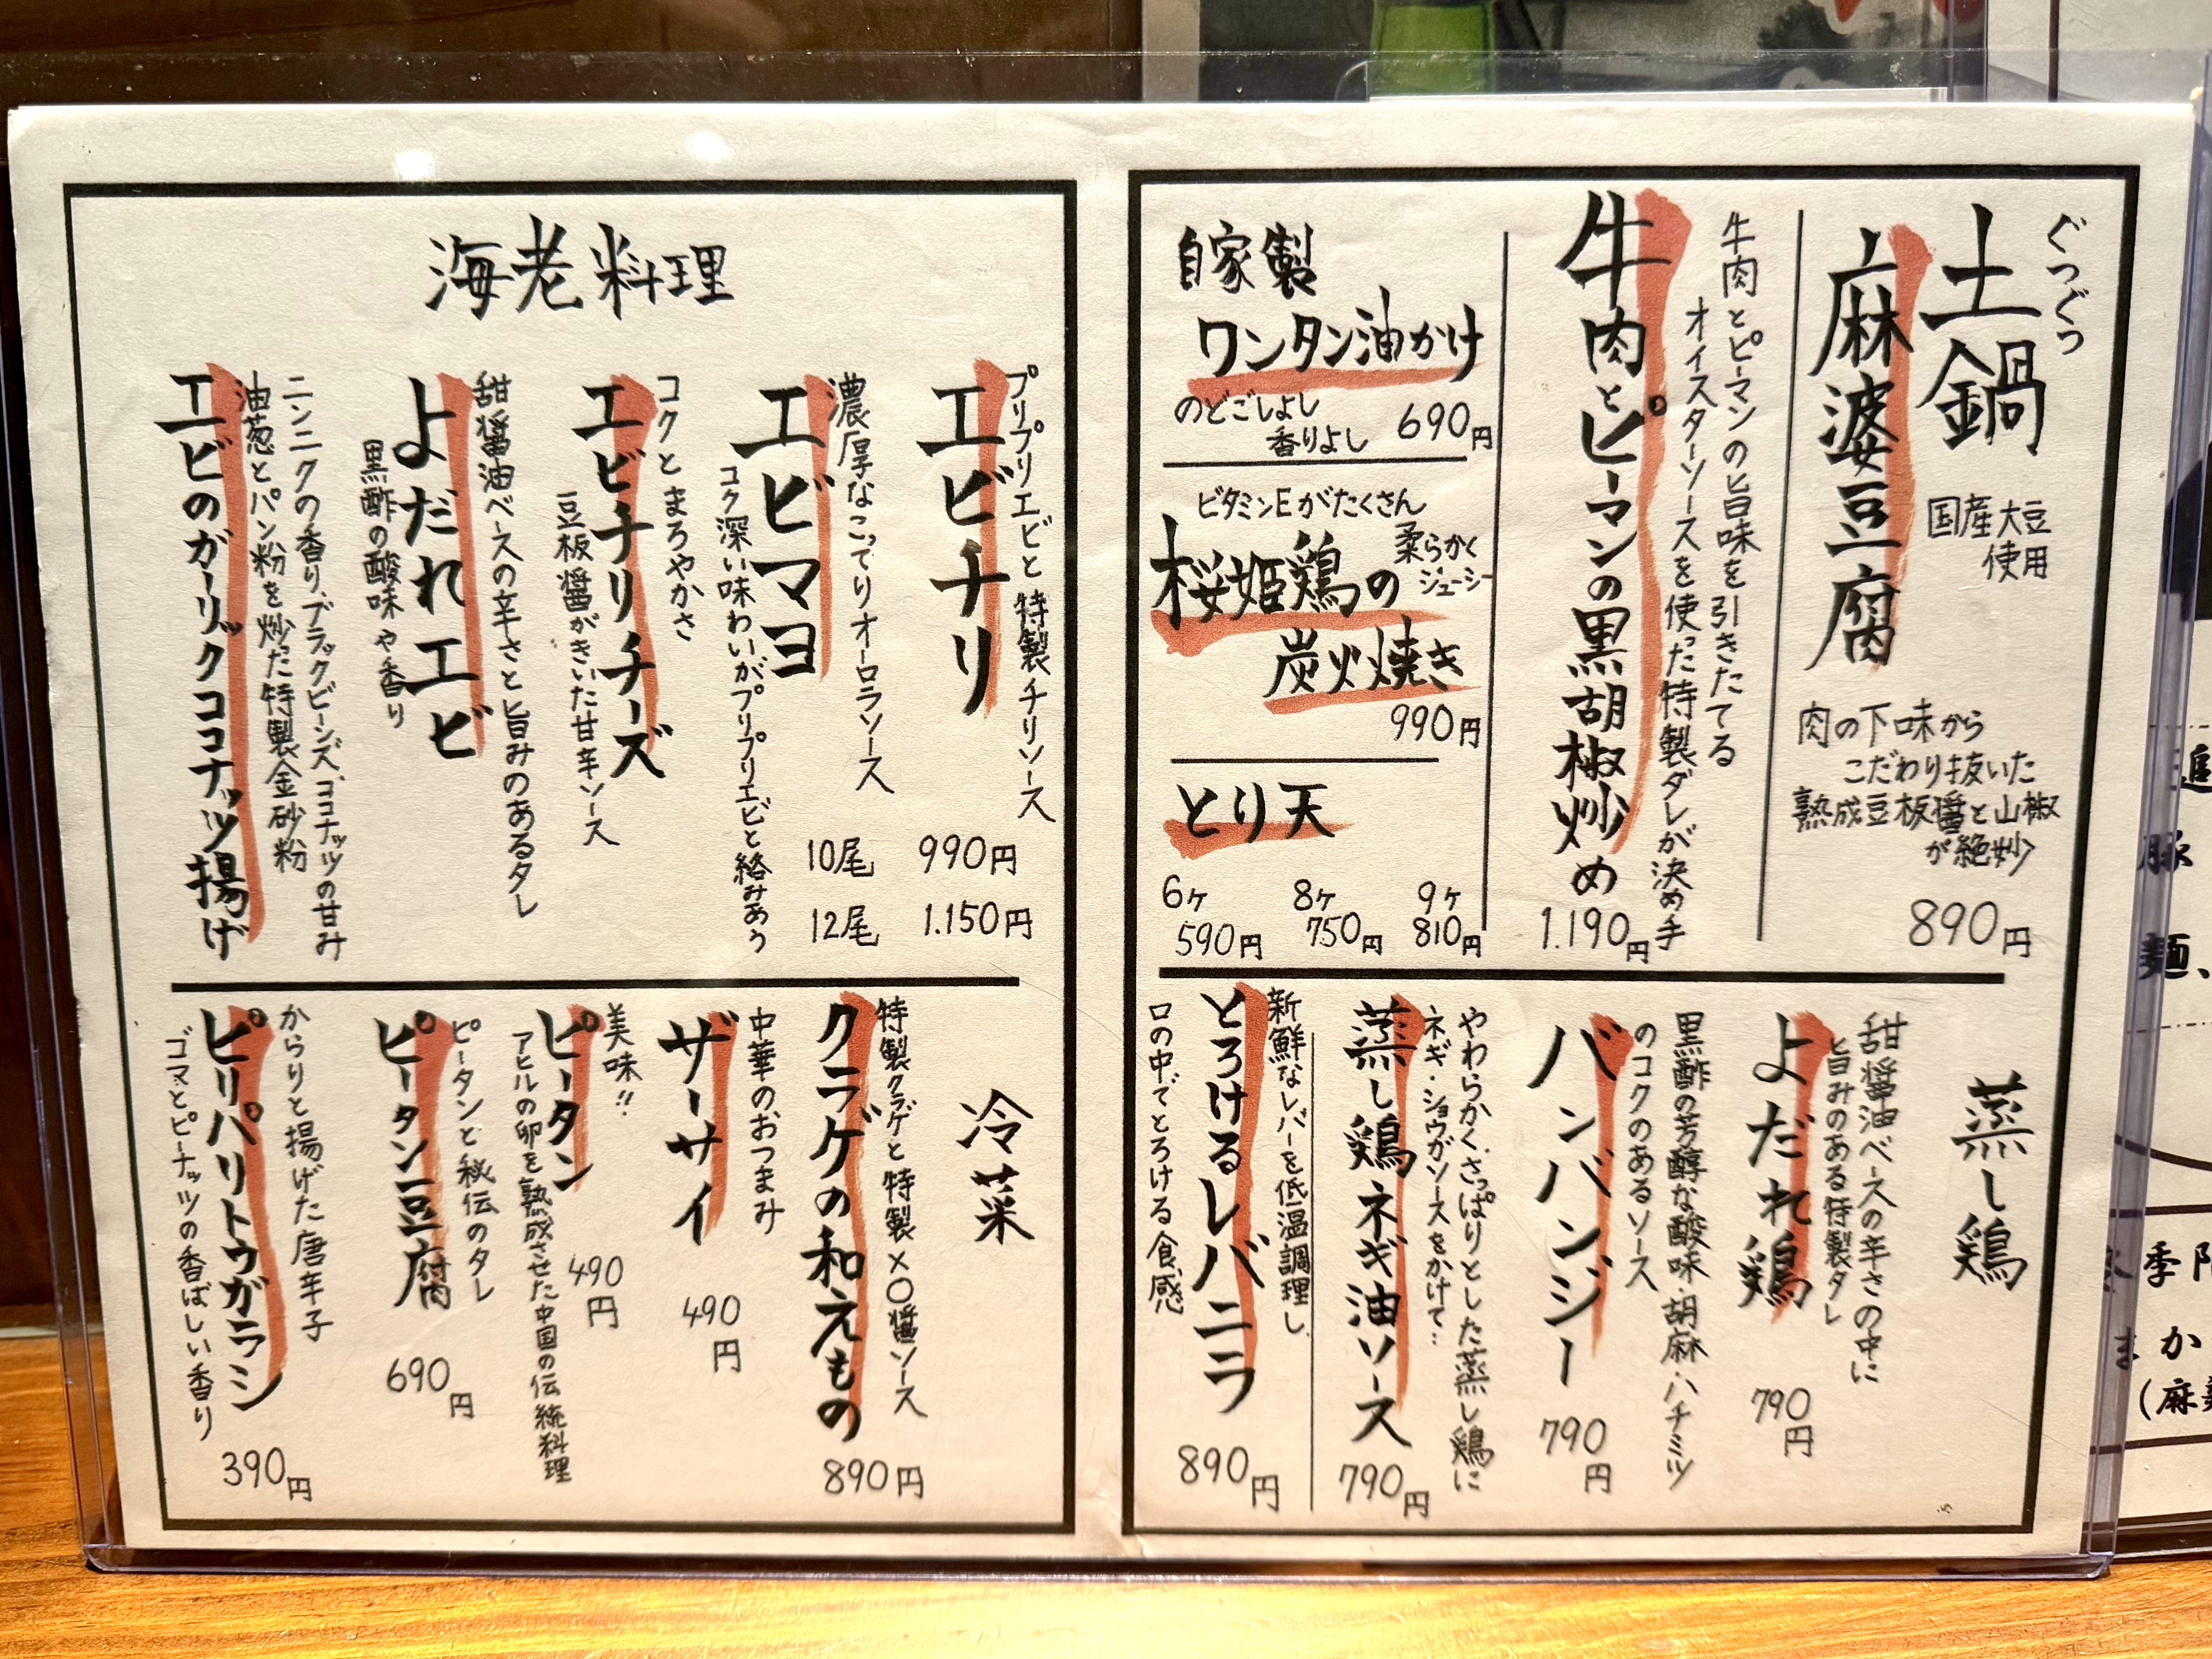 ぐつぐつ
土鍋
麻婆豆腐
国産大豆
使用
肉の下味から
こだわり抜いた
熟成豆板醤と山椒
が絶妙
890円
牛肉とピーマンの旨味を引きたてる
オイスターソースを使った特製ダレが決め手
牛肉とピーマンの黒胡椒炒め
1.190円
自家製
ワンタン油かけ
のどごしよし
香りよし
690円
ビタミンEがたくさん
柔らかく
ジューシー
桜姫鶏の
炭火焼き
990円
とり天
6ヶ 8ヶ 9ヶ
590円 750円 810円
蒸し鶏
甜醤油ベースの辛さの中に
旨みのある特製タレ
よだれ鶏
790円
黒酢の芳醇な酸味・胡麻・ハチミツ
のコクのあるソース
バンバンジー
790円
やわらかく、さっぱりとした蒸し鶏に
ネギ・ショウガソースをかけて…
蒸し鶏ネギ油ソース
790円
新鮮なレバーを低温調理し
口の中でとろける食感
とろけるレバニラ
890円
海老料理
プリプリエビと特製チリソース
エビチリ
濃厚なこってりオーロラソース
エビマヨ
コク深い味わいがプリプリエビと絡みあう
コクとまろやかさ
エビチリチーズ
豆板醤がきいた甘辛ソース
甜醤油ベースの辛さと旨みのあるタレ
よだれエビ
黒酢の酸味や香り
ニンニクの香り、ブラックビーンズ、ココナッツの甘み
油葱とパン粉を炒った特製金砂粉
エビのガーリックココナッツ揚げ
10尾 990円
12尾 1.150円
冷菜
特製クラゲと特製XO醤ソース
クラゲの和えもの
890円
中華のおつまみ
ザーサイ
490円
美味!!
ピータン
アヒルの卵を熟成させた中国の伝統料理
490円
ピータンと秘伝のタレ
ピータン豆腐
690円
からりと揚げた唐辛子
ピリパリトウガラシ
ゴマとピーナッツの香ばしい香り
390円
豚
麺、
季
まか
(麻